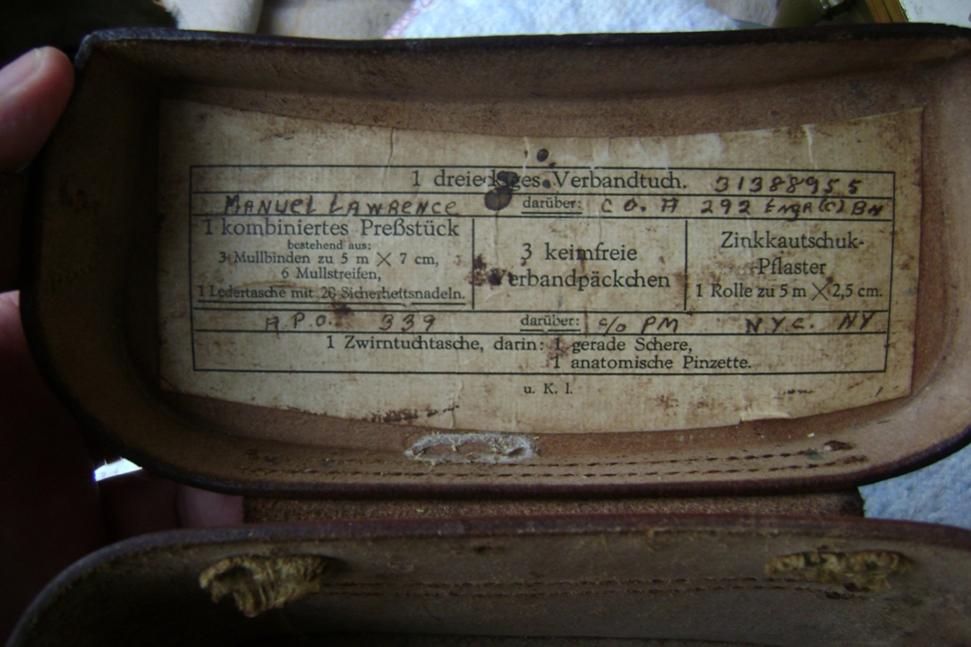 1 dreieckiges Verbandtuch. 31388955
MANUEL LAWRENCE darüber: CO. A 292 ENGR (C) BN
1 kombiniertes Preßstück
bestehend aus:
3 Mullbinden zu 5 m × 7 cm,
6 Mullstreifen,
1 Ledertasche mit 20 Sicherheitsnadeln.
3 keimfreie
Verbandpäckchen
Zinkkautschuk-
Pflaster
1 Rolle zu 5 m × 2,5 cm.
A.P.O. 339 darüber: c/o PM N.Y.C. NY
1 Zwirntuchtasche, darin: 1 gerade Schere,
1 anatomische Pinzette.
u. K. I.